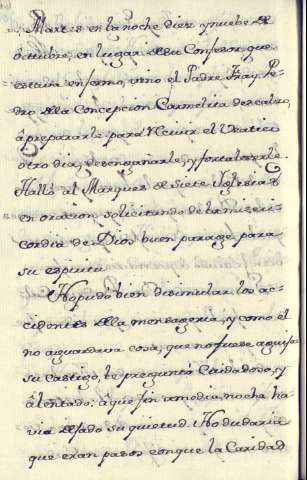 Martes en la noche diez y nuebe de
octubre, en lugar de su Confesor, que
estava enfermo, vino el Padre Fray Pe-
dro de la Concepcion Carmelita descalzo,
â prepararle para recivir el Viatico
otro dia, desengañarle, y fortalezerle.
Hallô al Marques de Siete Iglesias
en oracion, solicitando de la miseri-
cordia de Dios buen parage para
su espiritu.
No pudo bien disimular los ac-
cidentes de la mensageria, y como el
no aguardava cosa, que no fuese
su castigo, le preguntô cuidadoso, y
alentado: â que fin a media noche ha-
via dejado su quietud. No dudaria
que eran pasos con que la Caridad